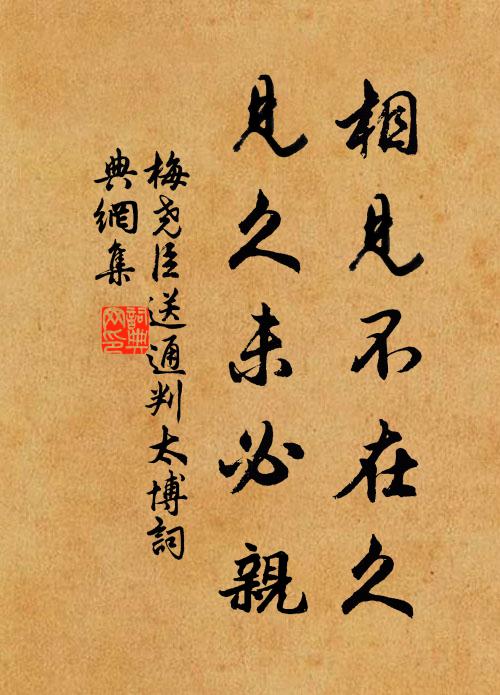 相見不在久
見久未必親
梅堯臣送通判太博詞
典網集
詞典
网印